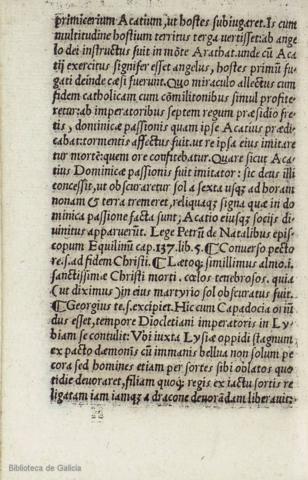 primicerium Acatium, ut hostes subiugaret. Is cum
multitudine hostium territus terga uertisset: ab ange
lo dei instructus fuit in mōte Arathat. unde cū Aca
tij exercitus signifer esset angelus, hostes primū fu
gati deinde cæsi fuerunt. Quo miraculo allectus cum
fidem catholicam cum cōmilitonibus simul profite-
retur: ab imperatoribus septem regum præsidio fre
tis, dominicæ passionis quam ipse Acatius prædi
cabat: tormentis affectus fuit. ut re ipsa eius imitare
tur mortē: quem ore confitebatur. Quare sicut Aca
tius Dominicæ passionis fuit imitator: sic deus illi
concessit, ut obscuraretur sol a sexta usq; ad horam
nonam & terra tremeret, reliquaq; signa quæ in do
minica passione facta sunt; Acatio eiusq; socijs di-
uinitus apparuerūt. Lege Petrū de Natalibus epis-
copum Equilinū cap. 137. lib. 5. ¶ Conuerso pecto
re: s. ad fidem Christi. ¶ Lætoq; simillimus almo. i.
sanctissimæ Christi morti. cœlos tenebrosos. quia
(ut diximus) in eius martyrio sol obscuratus fuit.
¶ Georgius te s. excipiet. Hic cum Capadocia oriū
dus esset, tempore Diocletiani imperatoris in Ly
biam se contulit: Vbi iuxta Lysiæ oppidi stagnum
ex pacto dæmonis cū immanis bellua non solum pe
cora sed homines etiam per sortes sibi oblatos quo
tidie deuoraret, filiam quoq; regis ex iactu sortis re
ligatam iam iamq; a dracone deuorādam liberauit:
Biblioteca de Galicia